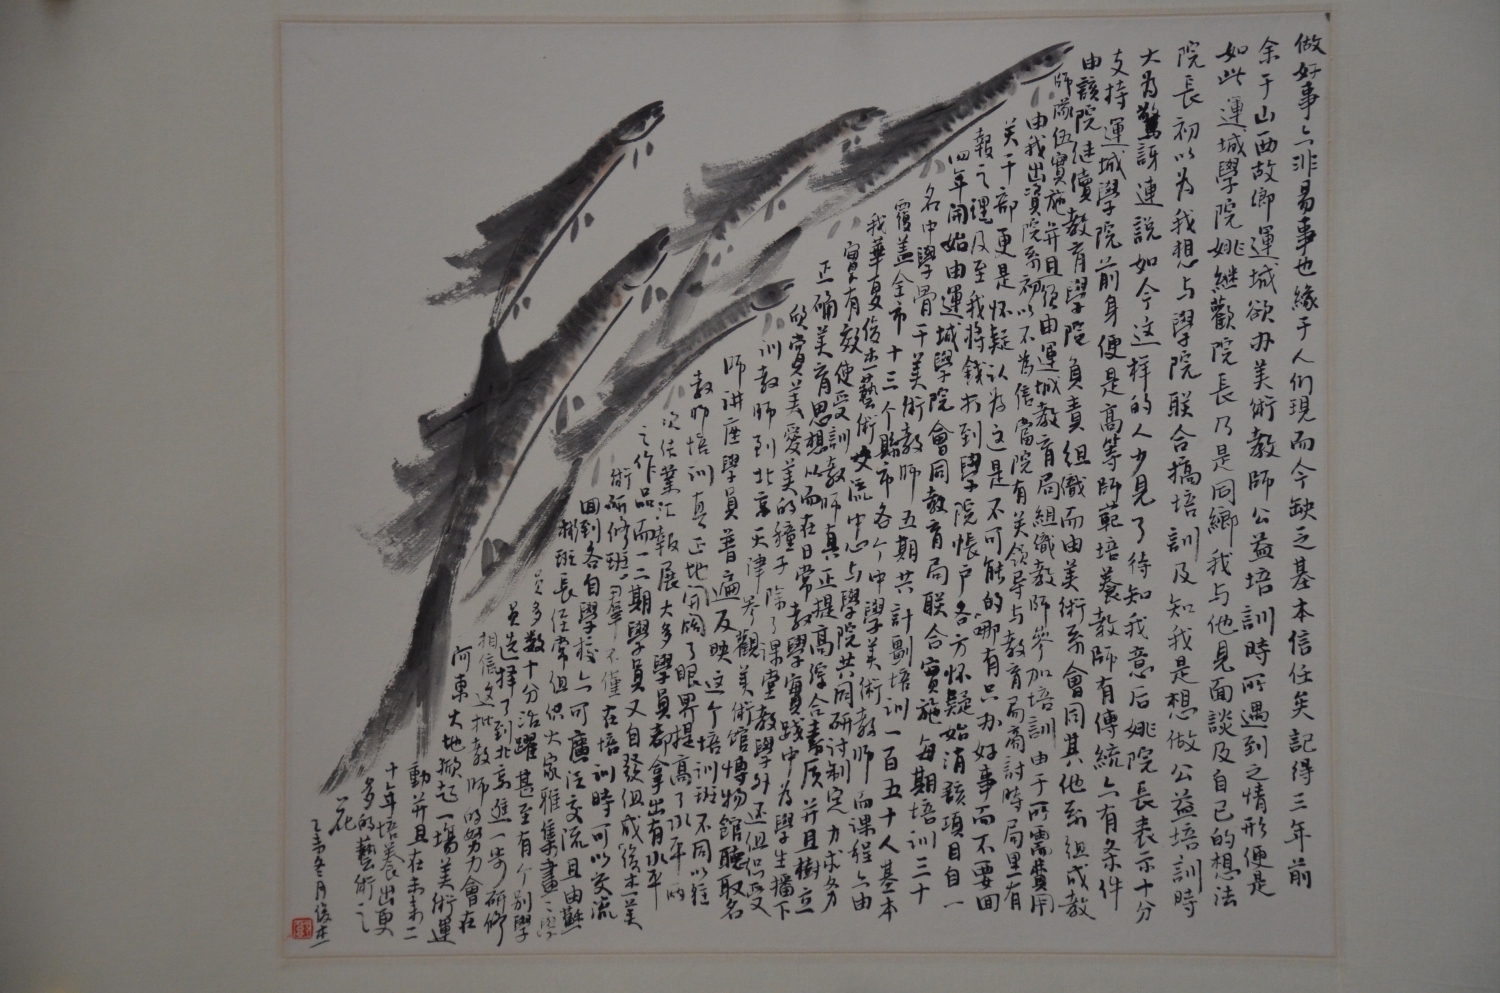 做好事亦非易事也緣于人们現而今缺之基本信任矣記得三年前
余于山西故鄉運城欲办美術教師公益培訓時所遇到之情形便是
如此運城學院姚继歡院長乃是同鄉我与他見面談及自己的想法
院長初以为我想与學院联合搞培訓及知我是想做公益培訓時
大为驚訝連説如今这样的人少見了待知我意后姚院長表示十分
支持運城學院前身便是高等師範培養教師有傳統亦有条件
由該院继續教育學院負責組織而由美術系會同其他系組成教
師隊伍實施并且須由運城教育局組織教師参加培訓由于所需費用
由我出資院系初以不为信當院有关领导与教育局商討時局里有
关干部更是怀疑认为这是不可能的哪有只办好事而不要回
報之理及至我将錢打到學院帳户各方怀疑始消該項目自一
四年開始由運城學院會同教育局联合實施每期培訓三十
名中學骨干美術教師五期共計劃培訓一百五十人基本
覆盖全市十三个縣市各个中學美術教師而課程亦由
我華夏俊杰藝術交流中心与學院共同研讨制定力求务
實有效使受訓教師真正提高综合素质并且樹立
正确美育思想从而在日常教學實践中为學生播下
欣賞美愛美的種子除了課堂教學外还组织受
訓教師到北京天津参觀美術館博物館聽取名
師讲座學員普遍反映这个培訓班不同以往
教師培训真正地开阔了眼界提高了水平两
次结業汇報展大多學員都拿出有水平
之作品而一二期學員又自發组成俊杰美
術研修班羣不僅在培訓時可以交流
回到各自學校亦可廣泛交流且由
班長任常组织大家雅集畫
员多数十分活躍甚至有个别學
員选择了到北京進一步研修
相信这批教师的努力會在
河東大地掀起一場美術運
動并且在未来二
十年培養出更
多的藝術之
花
乙未冬月俊杰